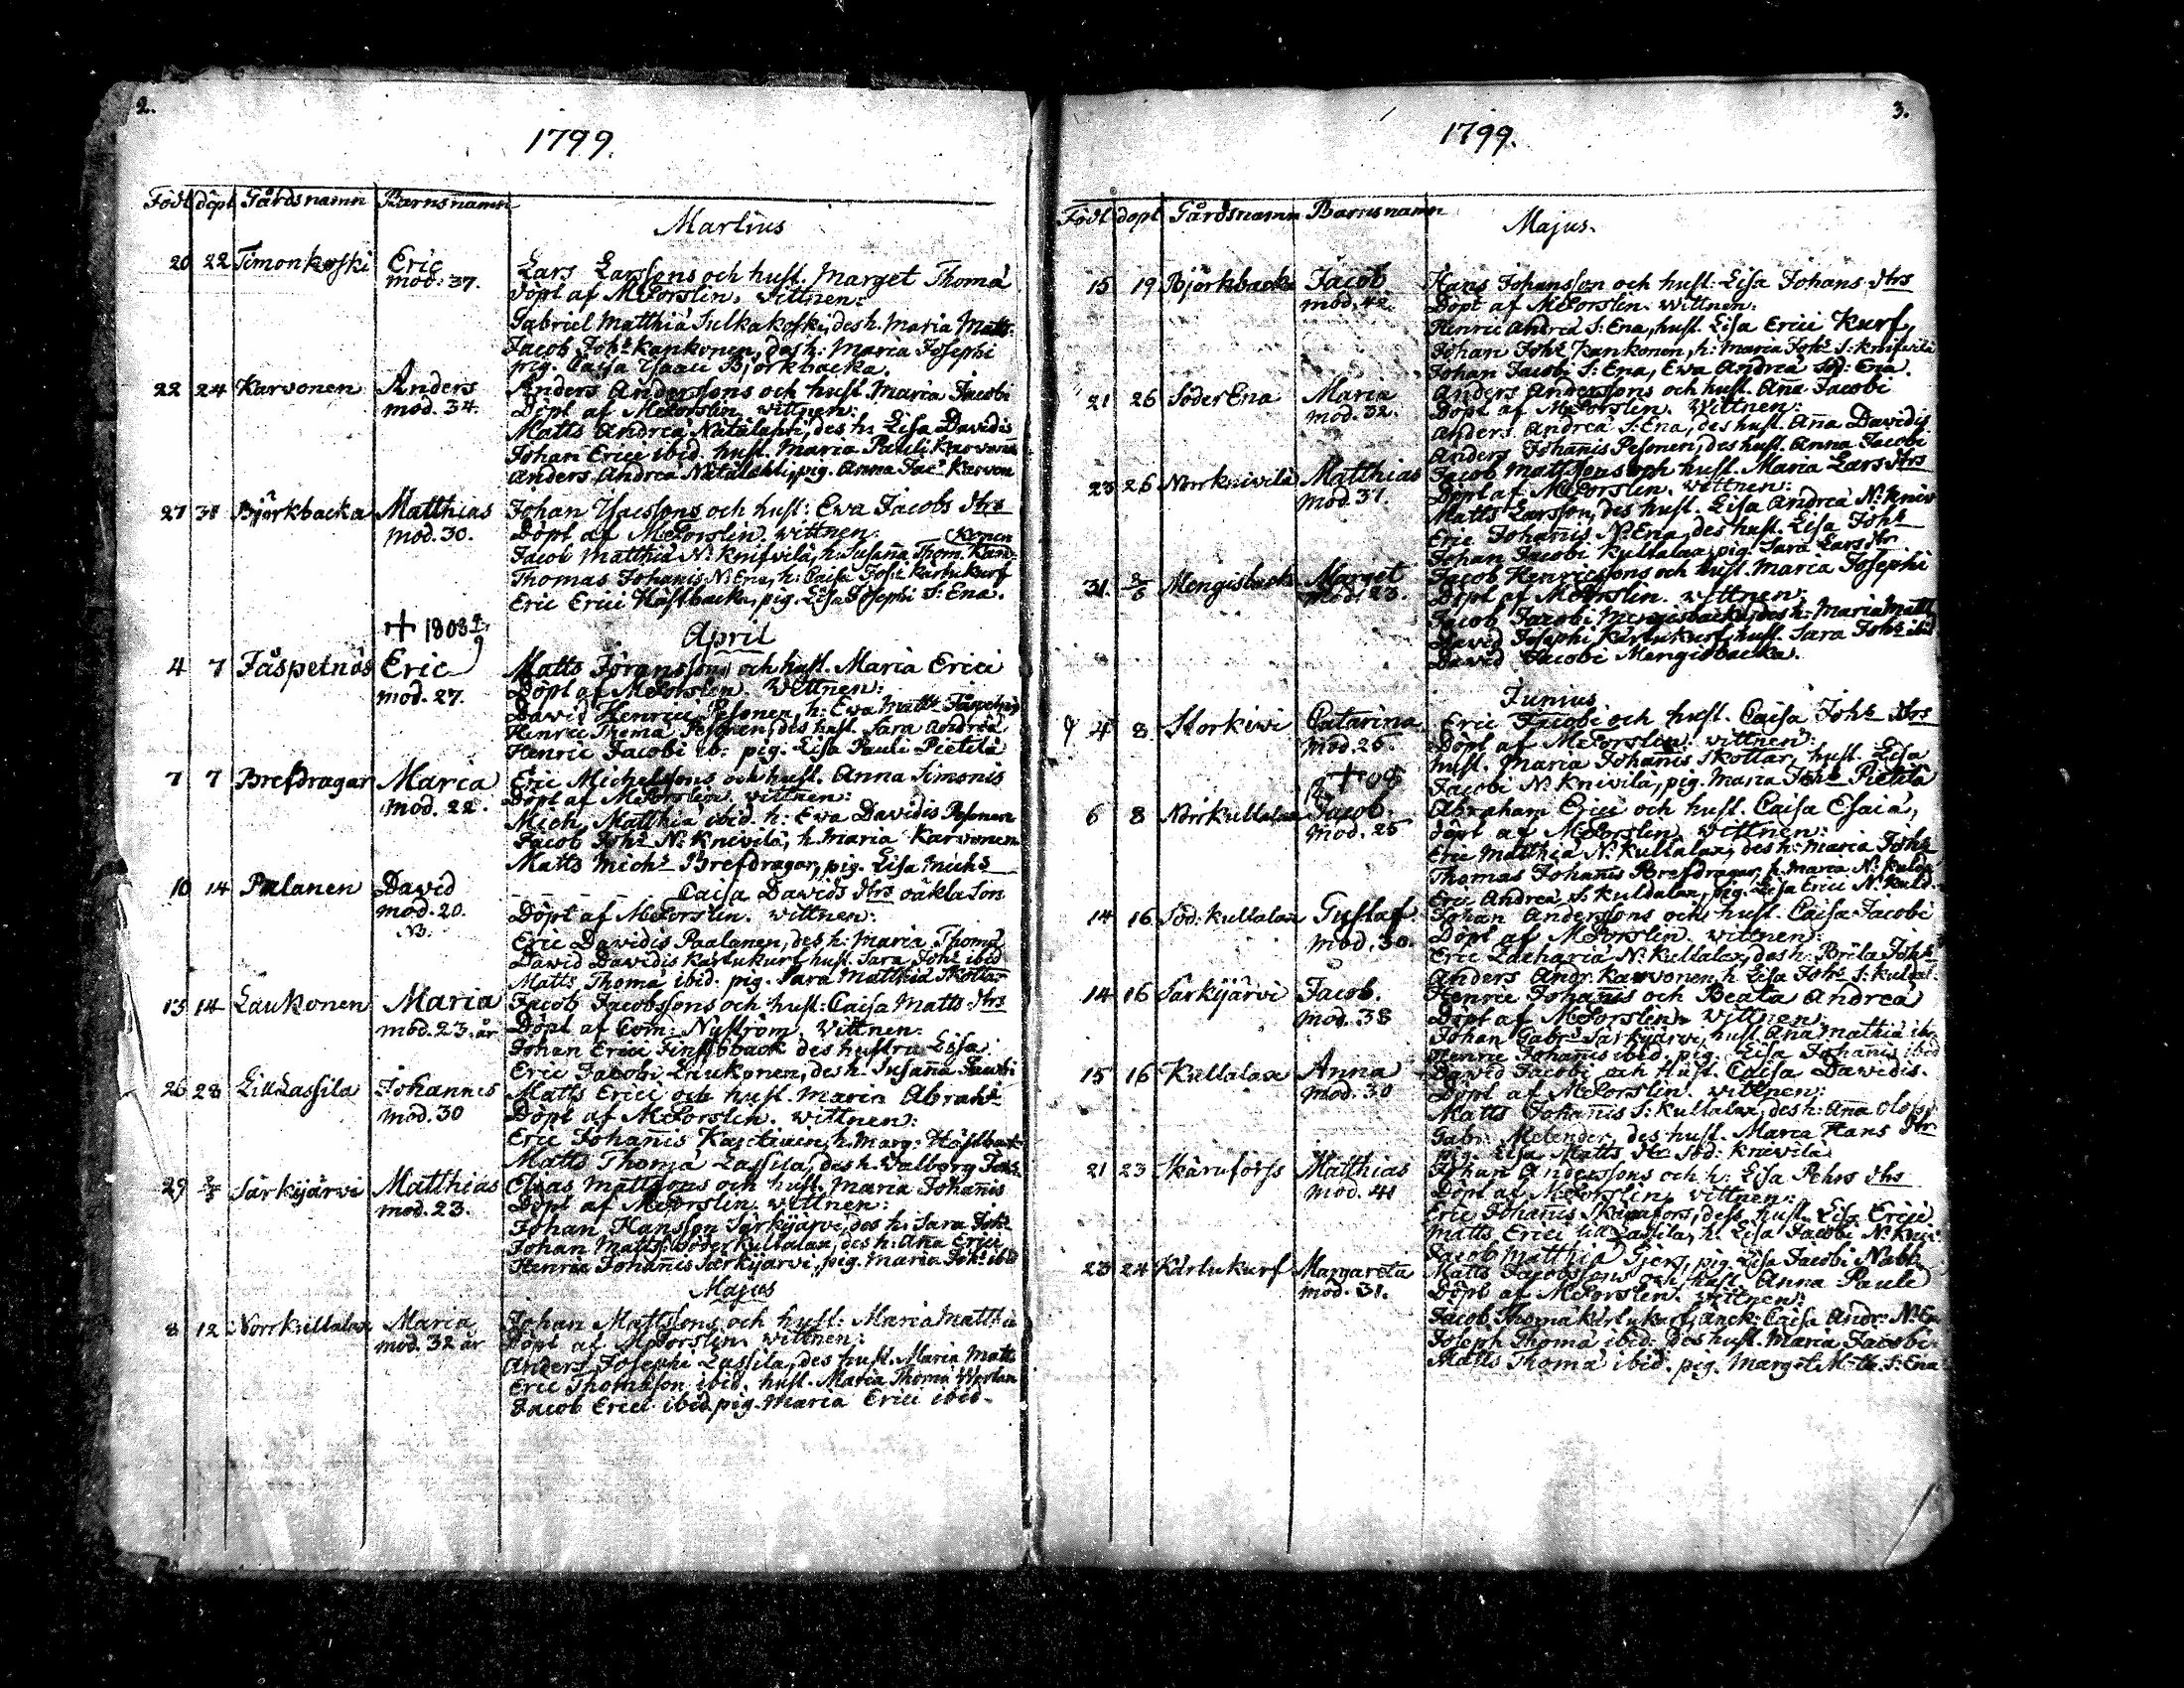 2.
1799.
Född döpt Gårdsnamn Barnsnamn
Martius
20 22 Timonkoski Eric Lars Larssons och hust. Marget Thomæ
mod. 37. döpt af McTorslin. Wittnen:
Gabriel Matthiæ Sulkakoski, des h. Maria Matts.
Jacob Johs Kankonen, des h: Maria Josephi
pig. Caisa Isaaci Björkbacka.
22 24 Karvonen Anders Anders Anderssons och hust. Maria Jacobi
mod. 34. Döpt af McTorslin. wittnen:
Matts Andreæ, des h. Lisa Davidis
Johan Erici ibid. hust. Maria Pauli
Anders Andreæ, pig. Anna Jacs Karvon
27 31 Björkbacka Matthias Johan Isacssons och hust: Ewa Jacobs dtr
mod. 30. Döpt af McTorslin. wittnen.
konen
Jacob Matthiæ N: Knifvilä, h. Susanna Thom. Kan-
Thomas Johannis N: Ena, h: Caisa Josi: Kärtukurf
Eric Erici Hästbacka, pig. Lisa Josephi S: Ena.
+ 1803
April
4 7 Jåspelnäs Eric Matts Joranssons och hust. Maria Erici
mod. 27. Döpt af McTorslin. Wittnen:
David Henrici Pesonen, h: Ewa Matts
Henric Thomæ Pesonen, des hust. Sara Andreæ
Henric Jacobi ib: pig: Lisa Pauli Pietilä
7 7 Brefdragar Maria Eric Michelssons och hust. Anna Simonis
mod. 22. Döpt af McTorslin, wittnen:
Mich. Matthiæ ibid. h: Ewa Davidis Pesonen
Jacob Johs N: Knivilä, h. Maria Karvonen
Matts Michs Brefdragar, pig. Lisa Michs
10 14 Palanen David Caisa Davids dtrs oäkta Son
mod. 20. Döpt af McTorslin. wittnen:
NB.
Eric Davidis Paalanen, des h: Maria Thomæ
David Davidis Kärtukurf, hust. Sara Johs ibid
Matts Thomæ ibid. pig. Sara Matthiæ Skottar
13 14 Laukonen Maria Jacob Jacobssons och hust: Caisa Matts dtrs
mod. 23. år Döpt af Com: Nyström. Wittnen:
Johan Erici des hustru Lisa
Eric Jacobi Laukonen, des h. Susanna
26 28 Lill Lassila Johannes Matts Erici och hust. Maria Abrahs
mod. 30 Döpt af McTorslin. wittnen:
Eric Johannis, h. Marg: Hästback
Matts Thomæ Lassila, des h. Walborg
29 2/5 Särkijärvi Matthias Clas Mattsons och hust. Maria Johannis
mod. 23. Döpt af McTorslin. wittnen:
Johan Hansson Särkijärvi, des h: Sara Johs
Johan Matts: Söderkullalax, des h: Anna Erici
Henric Johannis Särkijärvi, pig. Maria Johs ibid
Majus
8 12 Norrkullalax Maria Johan Mattssons och hust: Maria Matthiæ
mod. 32 år Döpt af McTorslin. wittnen:
Anders Josephi Lassila, des hust. Maria Matts
Eric Thomasson ibid. hust. Maria Thomæ
Jacob Erici ibid pig. Maria Erici ibid.
3.
1799.
Född döpt Gårdsnamn Barnsnamn
Majus.
15 19 Björkbacka Jacob Hans Johansson och hust: Lisa Johans dtrs
mod. 42. Döpt af McTorslin. wittnen:
Henric Andreæ S: Ena, hust. Lisa Erici Kurf,
Johan Johs Kankonen, h: Maria Johs S: Knifvilä
Johan Jacobi S: Ena, Ewa Andreæ Söd: Ena.
21 26 Söder Ena Maria Anders Anderssons och hust. Anna Jacobi
mod. 32. Döpt af McTorslin. Wittnen:
Anders Andreæ S: Ena, des hust. Anna Davidis
Anders Johannis Pesonen, des hust. Anna Jacobi
23 26 Norrknivilä Matthias Jacob Mattssons och hust. Maria Lars dtrs
mod. 37. Döpt af McTorslin. wittnen:
Matts Larsson, des hust. Lisa Andreæ N: Kniv
Eric Johannis N: Ena, des hust. Lisa Johs
Johan Jacobi Kullalax, pig. Sara Lars dtr
31. 2/6 Mengisback Marget Jacob Henricssons och hust. Maria Josephi
mod. 23. Döpt af McTorslin. wittnen:
Jacob Jacobi Mengisbacka, des h: Maria Matts
David Josephi Kärtukurf, hust. Sara Johs ibid
David Jacobi Mengisbacka.
Junius
4 8 Storkiwi Catarina Eric Jacobi och hust. Caisa Johs dtrs
mod. 25. Döpt af McTorslin. wittnen:
hust. Maria Johannis Skottar, hust. Lisa
Jacobi N: Knivilä, pig. Maria Johs Pietilä
+ 08
6 8 Norrkullalax Jacob. Abraham Erici och hust. Caisa Esaiæ,
mod. 25 döpt af McTorslin. Wittnen:
Eric Matthiæ N: Kullalax, des h: Maria Johs
Thomas Johannis Brefdragar, h. Maria N: Kulda
Eric Andreæ S: Kuldalax, pig. Lisa Erici N: Kuld.
14 16 Söd: Kullalax Gustaf Johan Anderssons och hust. Caisa Jacobi
mod. 30. Döpt af McTorslin. wittnen:
Eric Zachariæ N: Kullalax, des h: Brita Johs
Anders Andr. Karvonen h. Lisa Johs S: Kuldal.
14 16 Särkijärvi Jacob. Henric Johannis och Beata Andreæ
mod. 38 Döpt af McTorslin. Wittnen:
Johan Gabrs Särkijärvi, hust. Anna Mathiæ ibid
Henric Johannis ibid. pig. Lisa Johannis ibid
15 16 Kullalax Anna David Jacobi och Hust. Caisa Davidis.
mod. 30 Döpt af McTorslin. wittnen:
Matts Johannis S: Kullalax, des h: Anna
Gabr. Melender, des hust. Maria Hans dtr
pig. Lisa Matts dtr Söd: Knivilä
21 23 Skärufors Matthias Johan Anderssons och h: Lisa Pehrs dtrs
mod. 41 Döpt af McTorslin, wittnen:
Eric Johannis, dess hust. Lisa Erici
Matts Erici lill Lassila, h. Lisa Jacobi N: Kniv:
Jacob Matthiæ, pig. Lisa Jacobi
23 24 Kärtukurf Margareta Matts Jacobssons och hust. Anna Pauli
mod. 31. Döpt af McTorslin. wittnen:
Jacob Thomæ Kärtukurf, Caisa Andr: N: En
Joseph Thomæ ibid. des hust. Maria Jacobi
Matts Thomæ ibid. pig. Marget S: Ena